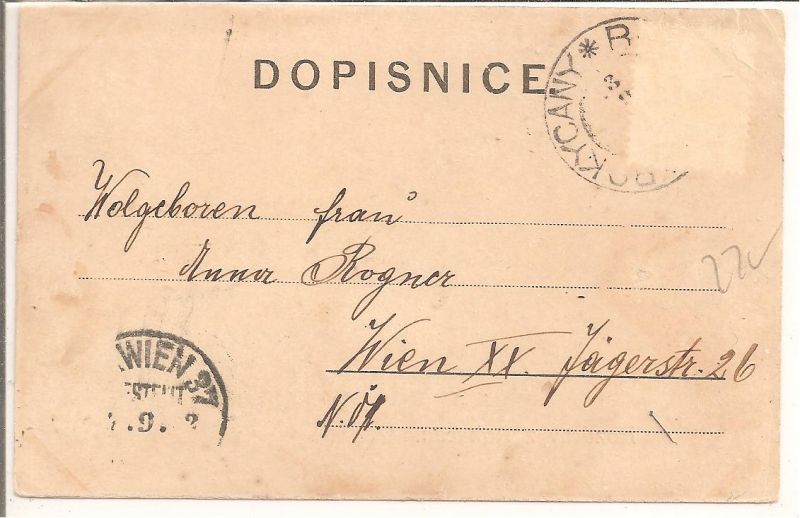 DOPISNICE
KYCANY * R
Wolgeboren frau
Anna Rogner
Wien XX. Jägerstr. 26
N.Ö.
WIEN 37
BESTELLT
.9.